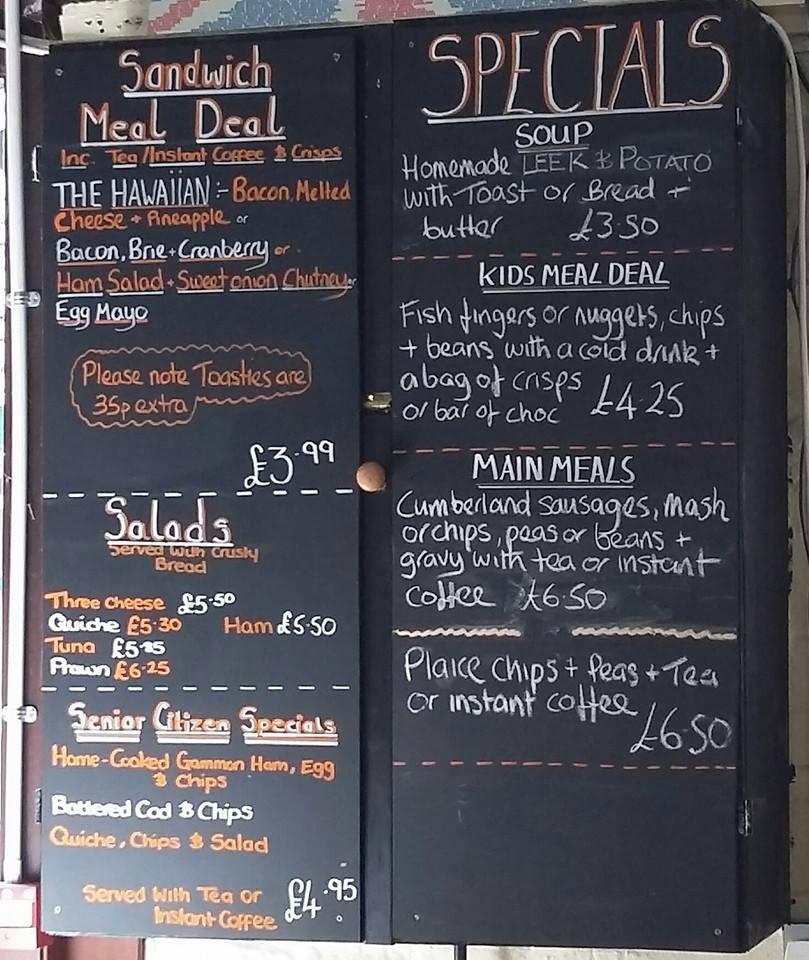 Sandwich
Meal Deal
Inc. Tea/Instant Coffee & Crisps
THE HAWAIIAN :- Bacon, Melted
Cheese + Pineapple or
Bacon, Brie + Cranberry or
Ham Salad + Sweet onion Chutney or
Egg Mayo
Please note Toasties are
35p extra
£3.99
Salads
Served with Crusty
Bread
Three Cheese £5.50
Quiche £5.30 Ham £5.50
Tuna
Prawn £6.25
Senior Citizen Specials
Home-Cooked Gammon Ham, Egg
& Chips
Battered Cod & Chips
Quiche, Chips & Salad
Served With Tea or
Instant Coffee
£4.95
SPECIALS
SOUP
Homemade LEEK & POTATO
with Toast or Bread +
butter £3.50
KIDS MEAL DEAL
Fish fingers or nuggets, chips
+ beans with a cold drink +
a bag of crisps
or bar of choc £4.25
MAIN MEALS
Cumberland sausages, mash
or chips, peas or beans +
gravy with tea or instant
coffee £6.50
Plaice chips + Peas + Tea
or instant coffee
£6.50